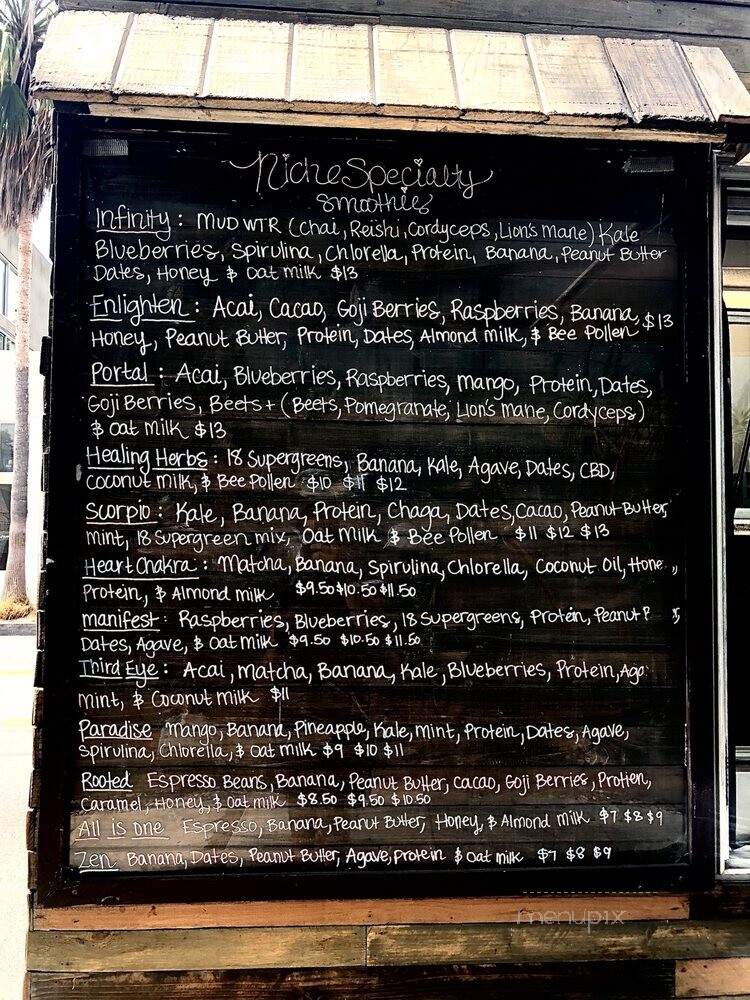 Niche Specialty
Smoothies
Infinity: MUD WTR (chai, Reishi, Cordyceps, Lion's mane) Kale
Blueberries, Spirulina, Chlorella, Protein, Banana, Peanut Butter
Dates, Honey & Oat milk $13
Enlighten: Acai, Cacao, Goji Berries, Raspberries, Banana, $13
Honey, Peanut Butter, Protein, Dates, Almond milk, & Bee Pollen
Portal: Acai, Blueberries, Raspberries, mango, Protein, Dates,
Goji Berries, Beets+ (Beets, Pomegranate, Lion's mane, Cordyceps)
& Oat milk $13
Healing Herbs: 18 Supergreens, Banana, Kale, Agave, Dates, CBD,
Coconut milk, & Bee Pollen $10 $11 $12
Scorpio: Kale, Banana, Protein, Chaga, Dates, Cacao, Peanut Butter,
mint, 18 Supergreen mix, Oat Milk & Bee Pollen $11 $12 $13
Heart Chakra: Matcha, Banana, Spirulina, Chlorella, Coconut Oil, Hone ,
Protein, & Almond milk $9.50 $10.50 $11.50
manifest: Raspberries, Blueberries, 18 Supergreens, Protein, Peanut
Dates, Agave, & Oat milk $9.50 $10.50 $11.50
Third Eye: Acai, Matcha, Banana, Kale, Blueberries, Protein,
mint, & Coconut milk $11
Paradise Mango, Banana, Pineapple, Kale, mint, Protein, Dates, Agave,
Spirulina, Chlorella, & Oat milk $9 $10 $11
Rooted Espresso Beans, Banana, Peanut Butter, Cacao, Goji Berries, Protien,
Caramel, Honey, & Oat milk $8.50 $9.50 $10.50
All is One Espresso, Banana, Peanut Butter, Honey, & Almond milk $7 $8 $9
Zen Banana, Dates, Peanut Butter, Agave, protein & Oat milk $7 $8 $9
menupix